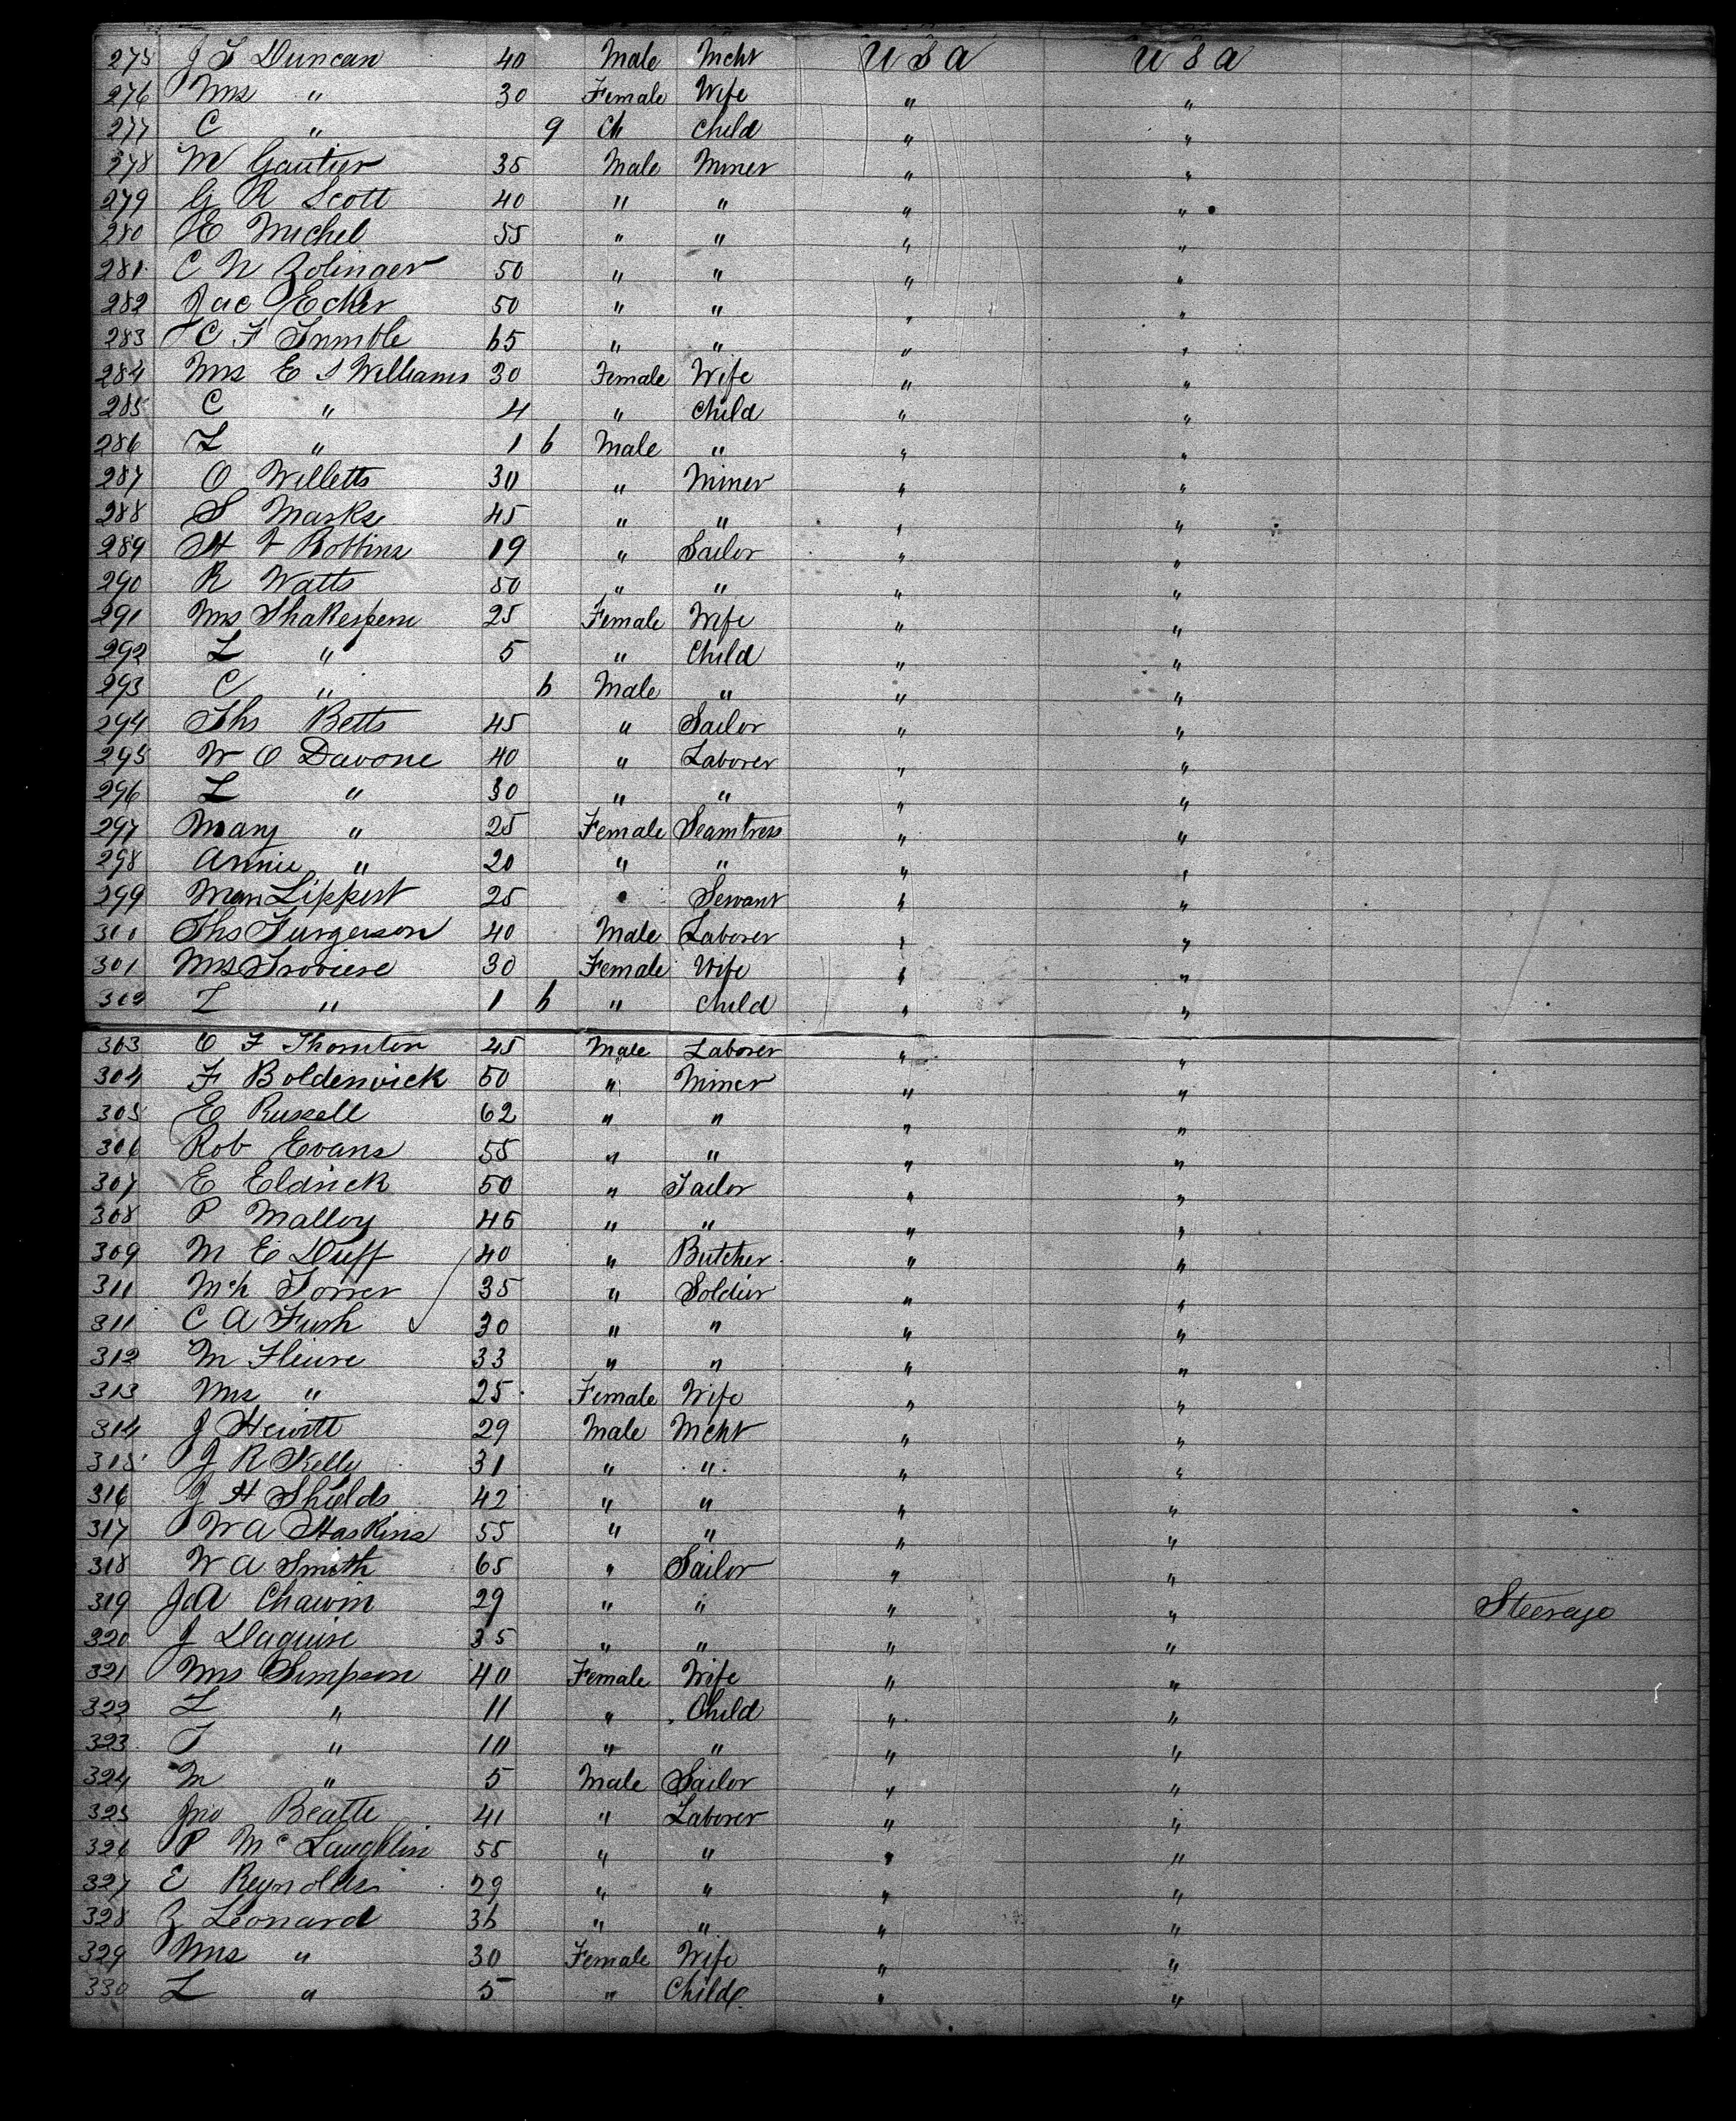 275 J T Duncan 40 Male Mcht U S A U S A
276 Mrs " 30 Female Wife " "
277 C " 9 Ch Child " "
278 M Gautier 35 Male Miner " "
279 G R Scott 40 " " " "
280 E Michel 55 " " " "
281 C N Zolinger 50 " " " "
282 Jac Ecker 50 " " " "
283 C F Trimble 65 " " " "
284 Mrs E S Williams 30 Female Wife " "
285 C " 4 " Child " "
286 L " 1 6 Male " " "
287 O Willetts 30 " Miner " "
288 S Marks 45 " " " "
289 H F Robbins 19 " Sailor " "
290 R Watts 50 " " " "
291 Mrs Shakespere 25 Female Wife " "
292 L " 5 " Child " "
293 C " 6 Male " " "
294 Ths Betts 45 " Sailor " "
295 W O Davone 40 " Laborer " "
296 L " 30 " " " "
297 Mary " 25 Female Seamtress " "
298 Annie " 20 " " " "
299 Mary Lippert 25 " Servant " "
300 Ths Furgerson 40 Male Laborer " "
301 Mrs Troviere 30 Female Wife " "
302 L " 1 6 " Child " "
303 O F Thornton 45 Male Laborer " "
304 F Boldenwick 50 " Miner " "
305 E Russell 62 " " " "
306 Rob Evans 55 " " " "
307 E Eldrick 50 " Tailor " "
308 P Malloy 46 " " " "
309 M E Duff 40 " Butcher " "
311 Torrer 35 " Soldier " "
311 C A Fush 30 " " " "
312 M Fleure 33 " " " "
313 Mrs " 25 Female Wife " "
314 J Hewitt 29 Male Mcht " "
315 J R Kelly 31 " " " "
316 J H Shields 42 " " " "
317 W A Haskins 55 " " " "
318 W A Smith 65 " Sailor " "
319 J A Chawin 29 " " " " Steerage
320 J Daguise 35 " " " "
321 Mrs Simpson 40 Female Wife " "
322 L " 11 " Child " "
323 T " 10 " " " "
324 M " 5 Male Sailor " "
325 Jno Beatte 41 " Laborer " "
326 P McLaughlin 55 " " " "
327 E Reynolds 29 " " " "
328 Z Leonard 36 " " " "
329 Mrs " 30 Female Wife " "
330 L " 5 " Child " "